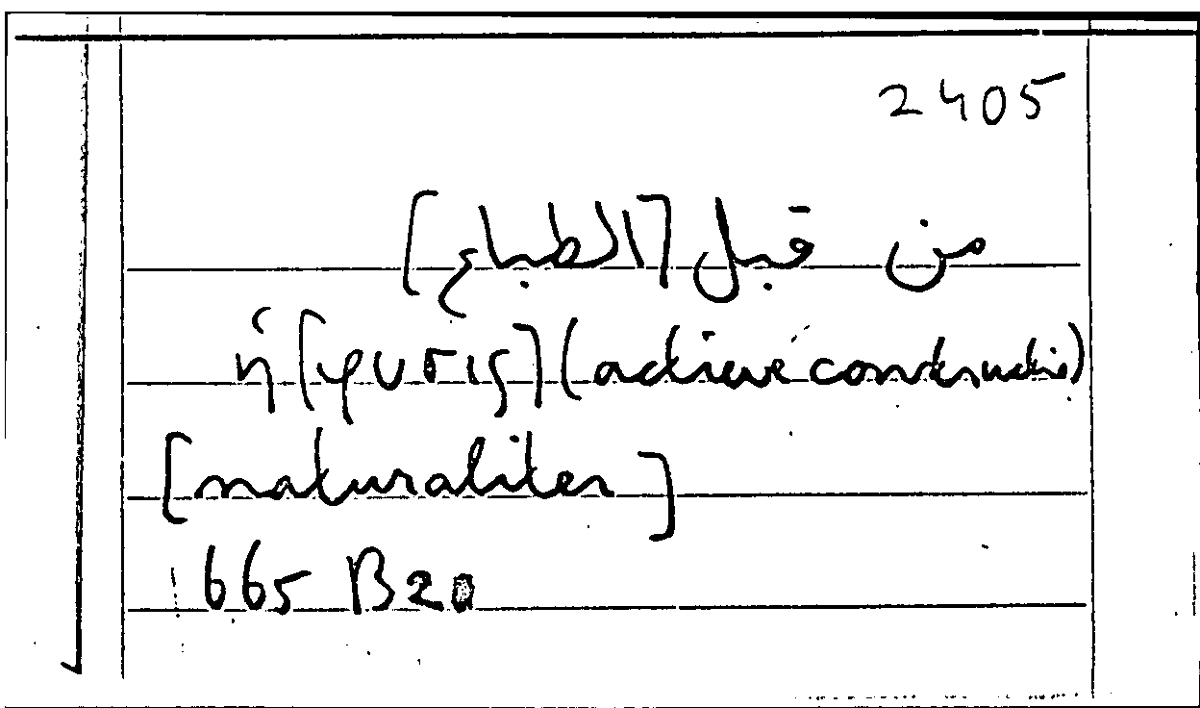 2405
من قبل [الطباع]
ἡ [φυσις] (active construction)
[naturaliter]
665 B20